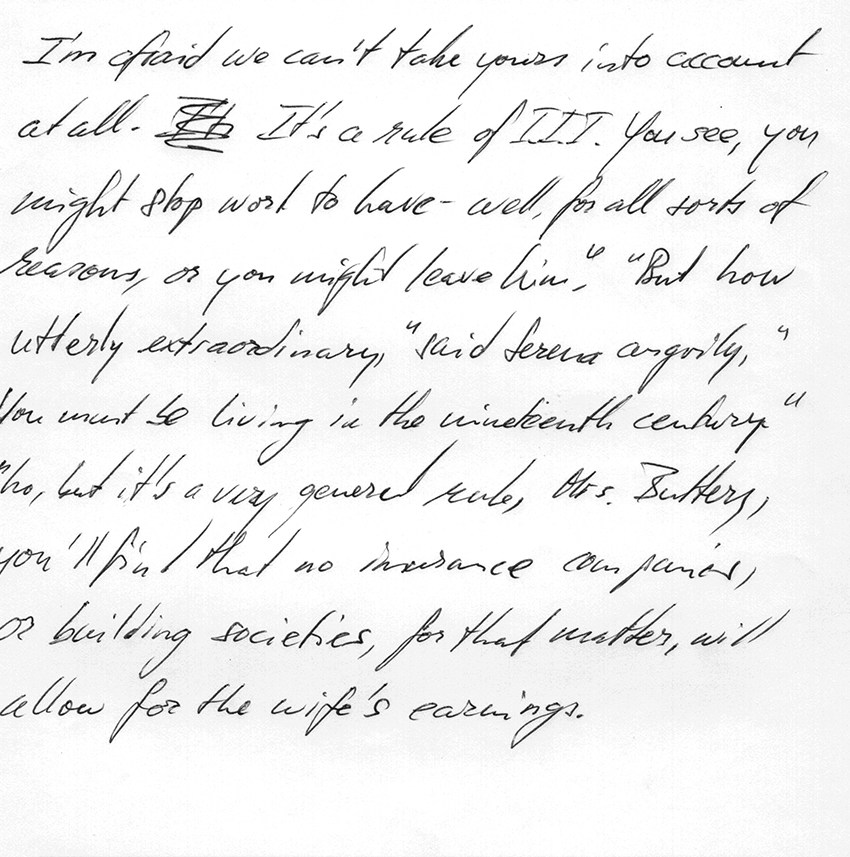 I'm afraid we can't take yours into account
at all. It's a rule of III. You see, you
might stop work to have - well, for all sorts of
reasons, or you might leave him." "But how
utterly extraordinary," said Serena angrily, "
You must be living in the nineteenth century."
"No, but it's a very general rule, Mrs. Buttery,
you'll find that no insurance companies,
or building societies, for that matter, will
allow for the wife's earnings.